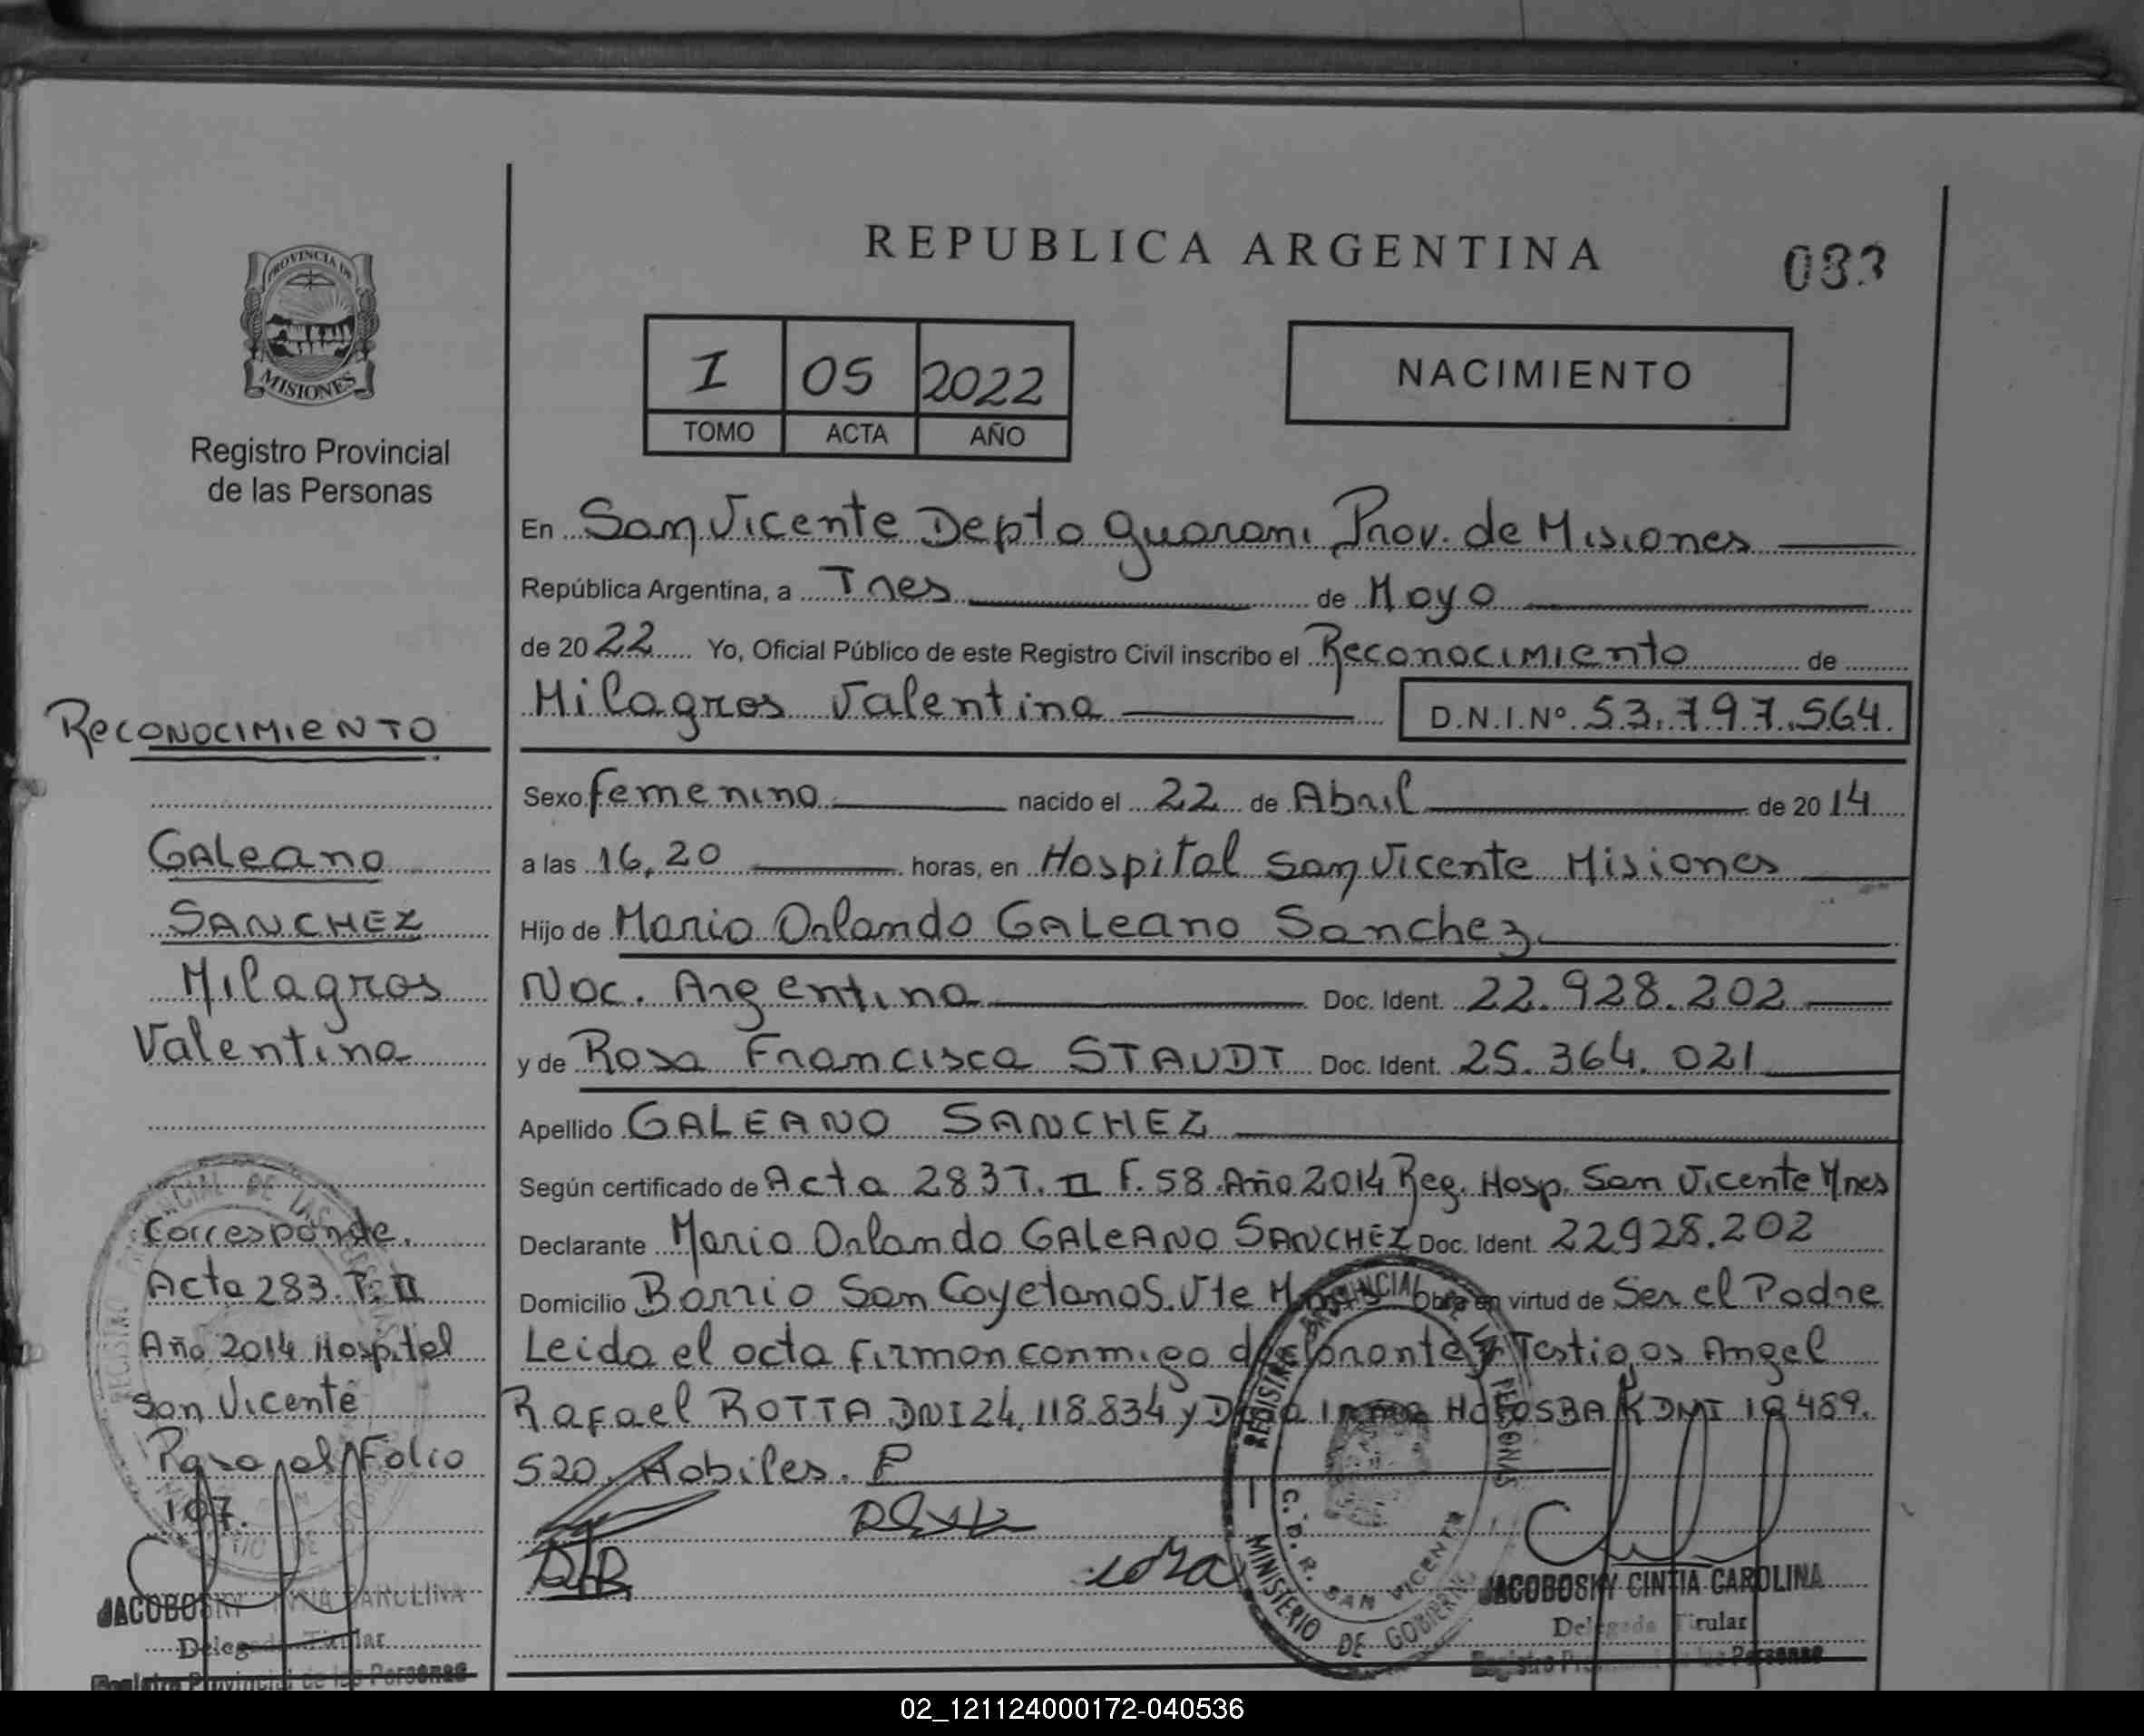 PROVINCIA DE
MISIONES
Registro Provincial
de las Personas
REPUBLICA ARGENTINA
033
I 05 2022
TOMO ACTA AÑO
NACIMIENTO
En San Vicente Depto Guarani Prov. de Misiones
República Argentina, a Tres de Mayo
de 2022 Yo, Oficial Público de este Registro Civil inscribo el Reconocimiento de
Milagros Valentina D.N.I.Nº 53.797.564.
Sexo femenino nacido el 22 de Abril de 2014
a las 16,20 horas, en Hospital San Vicente Misiones
Hijo de Mario Orlando Galeano Sanchez
Nac. Argentina Doc. Ident. 22.928.202
y de Rosa Francisca STAUDT Doc. Ident. 25.364.021
Apellido GALEANO SANCHEZ
Según certificado de Acta 283 T. II F. 58 Año 2014 Reg. Hosp. San Vicente Mnes
Declarante Mario Orlando GALEANO SANCHEZ Doc. Ident. 22928.202
Domicilio Barrio San Cayetano S. Vte Obra en virtud de Ser el Padre
Leida el acta firman conmigo declarante y Testigos Angel
Rafael ROTTA DNI 24.118.834 y DNI 489.
520. Habiles.
RECONOCIMIENTO
Galeano
SANCHEZ
Milagros
Valentina
Corresponde.
Acta 283. T: II
Año 2014 Hospital
San Vicente
Pasa al Folio
107.
JACOBOSKY CINTIA CAROLINA
Delegada Titular
Registro Provincial de las Personas
REGISTRO PROVINCIAL DE LAS PERSONAS
C. D. R. SAN VICENTE
MINISTERIO DE GOBIERNO
JACOBOSKY CINTIA CAROLINA
Delegada Titular
Registro Provincial de las Personas
02_121124000172-040536